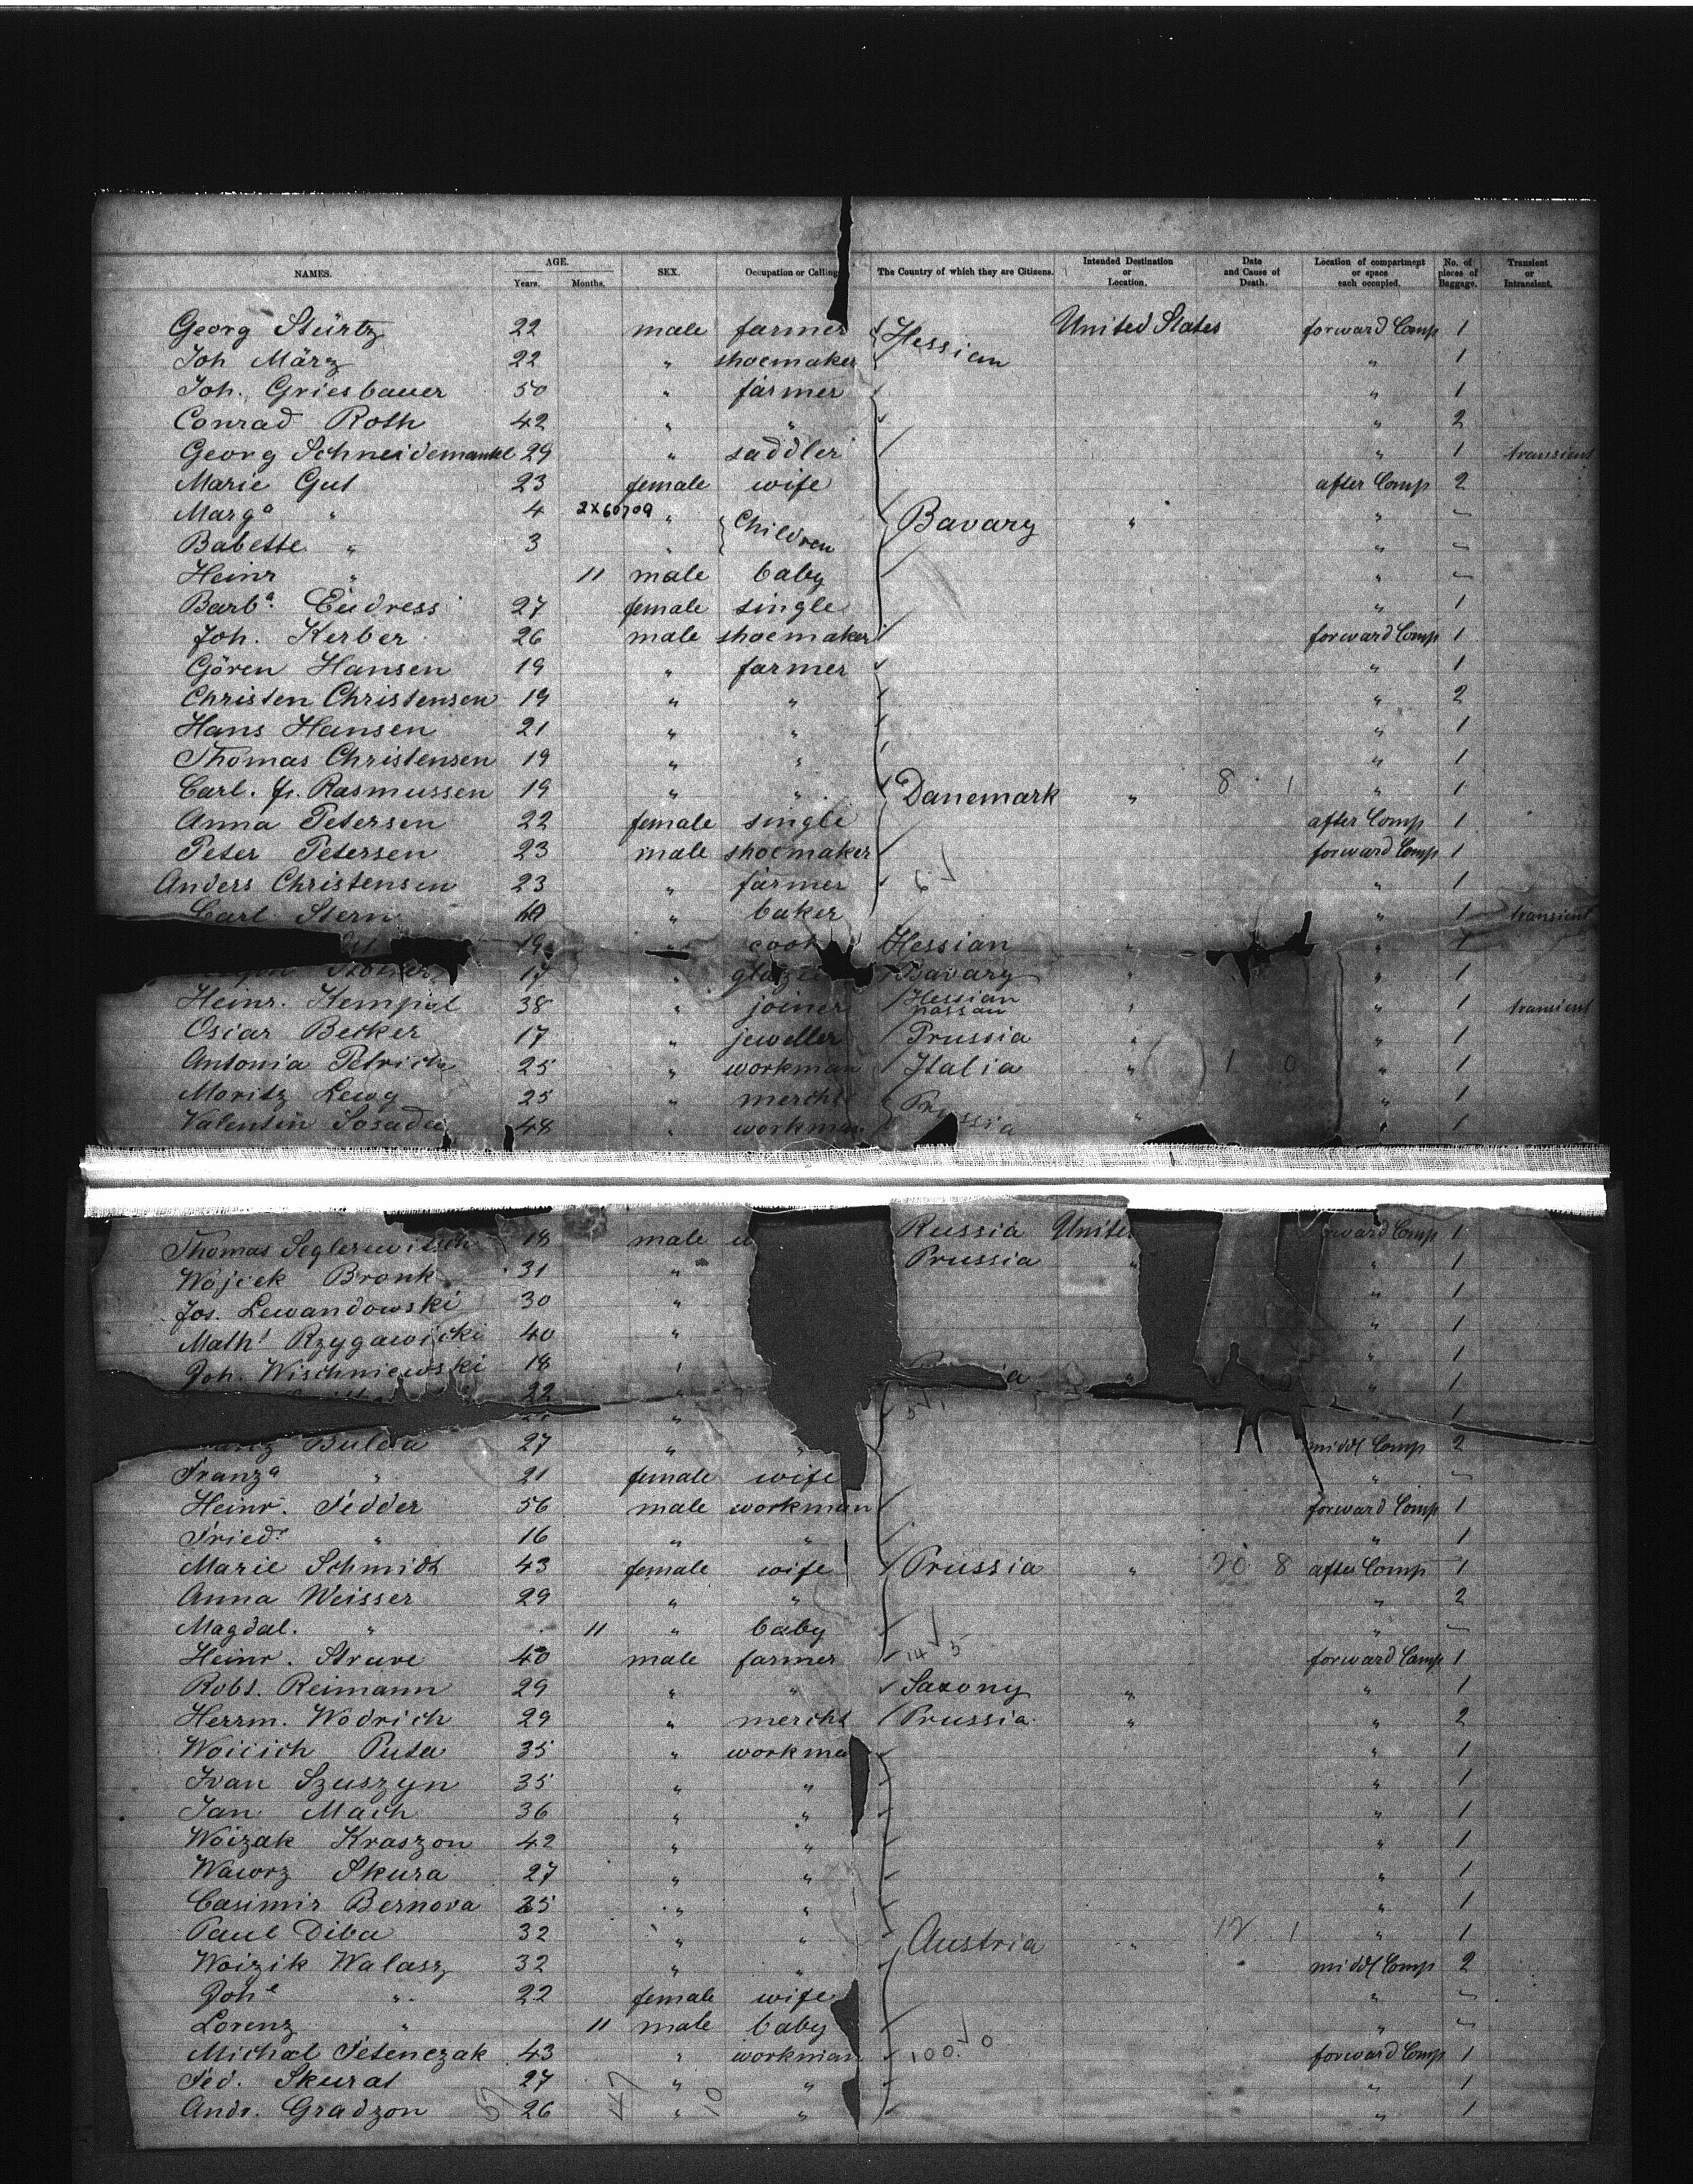 NAMES. AGE. Years. Months. SEX. Occupation or Calling The Country of which they are Citizens. Intended Destination or Location. Date and Cause of Death. Location of compartment or space each occupied. No. of pieces of Baggage. Transient or Intransient.
Georg Stürtz 22 male farmer Hessian United States forward Comp 1
Joh März 22 " shoemaker " 1
Joh. Griesbauer 50 " farmer " 1
Conrad Roth 42 " " " 2
Georg Schneidemantel 29 " saddler " 1 transient
Marie Gut 23 female wife after Comp 2
Marga " 4 2x60709 " Children Bavary " " -
Babette " 3 " " -
Heinr " 11 male baby " -
Barba. Eüdress 27 female single " 1
Joh. Kerber 26 male shoemaker forward Comp 1
Gören Hansen 19 " farmer " 1
Christen Christensen 19 " " " 2
Hans Hansen 21 " " " 1
Thomas Christensen 19 " " " 1
Carl. Fr. Rasmussen 19 " " Danemark " 8 1 " 1
Anna Petersen 22 female single after Comp 1
Peter Petersen 23 male shoemaker forward Comp 1
Anders Christensen 23 " farmer 6 " 1
Carl Stern " baker " 1 transient
19 " cook Hessian " "
17 " Bavary " " 1
Heinr. Kempel 38 " joiner Hessian nassau " " 1 transient
Oscar Becker 17 " jeweller Prussia " " 1
Antonia Petrich 25 " workman Italia " 1 0 " 1
Moritz Lewy 25 " mercht Prussia " " 1
Valentin Sosada 48 " workman " 1
Thomas Seglerwitsch 18 male Russia Unite forward Comp 1
Wojcek Bronk 31 " Prussia " " 1
Jos. Lewandowski 30 " " 1
Maths Rzygawicki 40 " " 1
Joh. Wischniewski 18 " " 1
22 " " 1
Bulda 27 " " middl Comp 2
Franza " 21 female wife " -
Heinr. Fedder 56 male workman forward Comp 1
Friedr " 16 " " " 1
Marie Schmidt 43 female wife Prussia " 20 8 after Comp 1
Anna Weisser 29 " " " 2
Magdal. " 11 " baby " -
Heinr. Struve 40 male farmer 14 5 forward Comp 1
Robt. Reimann 29 " " Saxony " " 1
Herrm. Wodrich 29 " mercht Prussia " " 2
Woicich Puta 35 " workma " 1
Ivan Szuszyn 35 " " " 1
Jan Mach 36 " " " 1
Woizak Kraszon 42 " " " 1
Wawrz Skura 27 " " " 1
Casimir Bernova 35 " " " 1
Paul Diba 32 " " Austria " 12 1 " 1
Woizik Walasz 32 " " middl Comp 2
Johe " 22 female wife " -
Lorenz " 11 male baby " -
Michal Petenczak 43 " workman 100 0 forward Comp 1
Fed. Skurat 27 " " " 1
Andr. Gradzon 26 " " " 1
57 47 10